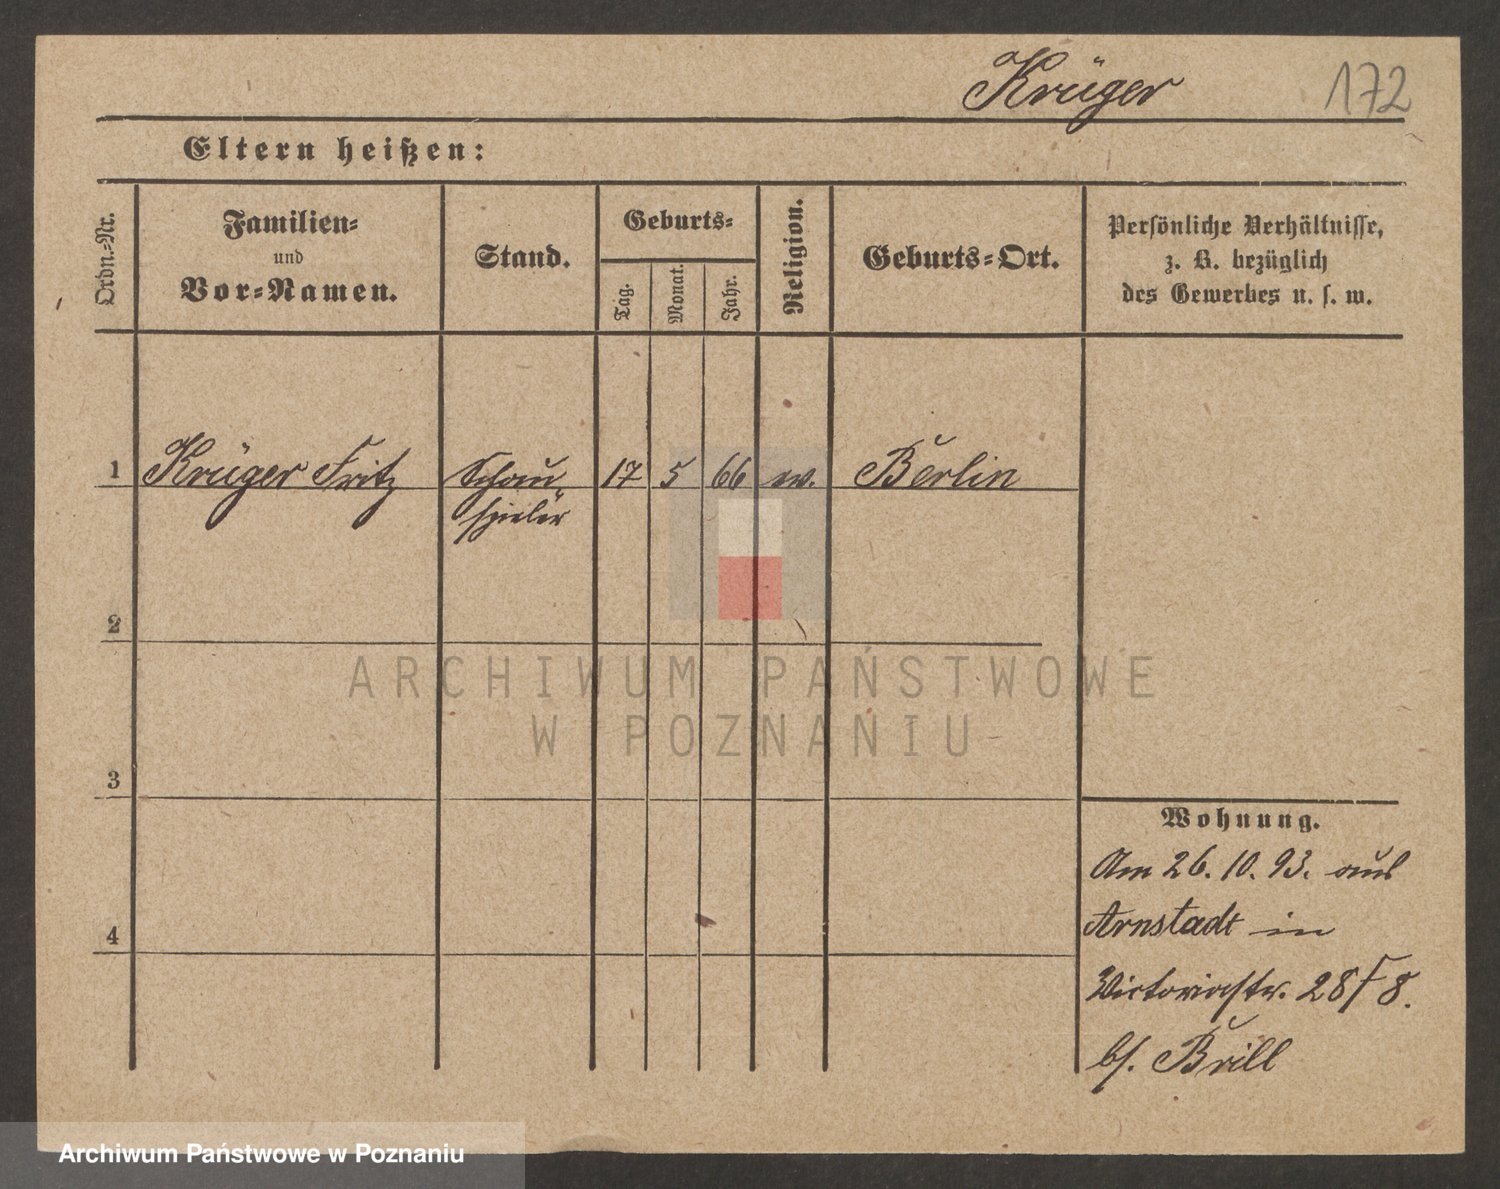 Krüger 172
Eltern heißen:
Ordn.-Nr.
Familien-
und
Vor-Namen.
Stand.
Geburts-
Tag.
Monat.
Jahr.
Religion.
Geburts-Ort.
Persönliche Verhältnisse,
z. B. bezüglich
des Gewerbes u. s. w.
1 Krüger Fritz Schau 17 5 66 ev. Berlin
spieler
2
ARCHIWUM PAŃSTWOWE
W POZNANIU
3
Wohnung.
Am 26. 10. 93. aus
4 Arnstadt in
Victoriastr. 28 8.
b/. Brill
Archiwum Państwowe w Poznaniu